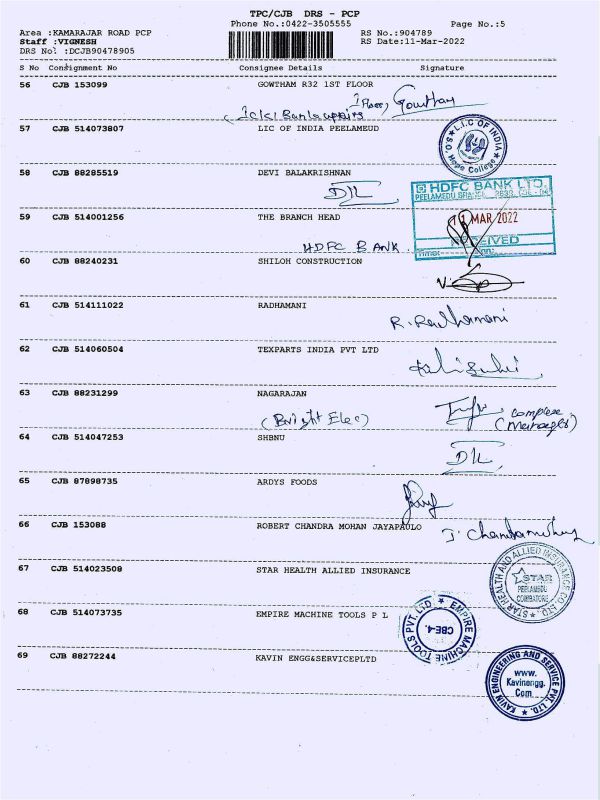 TPC/CJB DRS - PCP
Phone No.:0422-3505555 Page No.:5
Area :KAMARAJAR ROAD PCP RS No.:904789
Staff :VIGNESH RS Date:11-Mar-2022
DRS No. :DCJB90478905
S No Consignment No Consignee Details Signature
56 CJB 153099 GOWTHAM R32 1ST FLOOR
Gowtham
57 CJB 514073807 LIC OF INDIA PEELAMEUD
L.I.C OF INDIA
Hope College
58 CJB 88285519 DEVI BALAKRISHNAN
HDFC BANK LTD.
11 MAR 2022
RECEIVED
59 CJB 514001256 THE BRANCH HEAD
HDFC BANK
60 CJB 88240231 SHILOH CONSTRUCTION
61 CJB 514111022 RADHAMANI
R. Radhamani
62 CJB 514060504 TEXPARTS INDIA PVT LTD
63 CJB 88231299 NAGARAJAN
(Bright Elec) complex
(Manager)
64 CJB 514047253 SHBNU
65 CJB 87898735 ARDYS FOODS
66 CJB 153088 ROBERT CHANDRA MOHAN JAYAPAULO
67 CJB 514023508 STAR HEALTH ALLIED INSURANCE
STAR HEALTH AND ALLIED INSURANCE CO. LTD.
STAR
PEELAMEDU
COIMBATORE
68 CJB 514073735 EMPIRE MACHINE TOOLS P L
EMPIRE MACHINE TOOLS PVT. LTD
CBE-4.
69 CJB 88272244 KAVIN ENGG&SERVICEPLTD
KAVIN ENGINEERING AND SERVICE PVT. LTD.
www.
Kavinengg.
Com